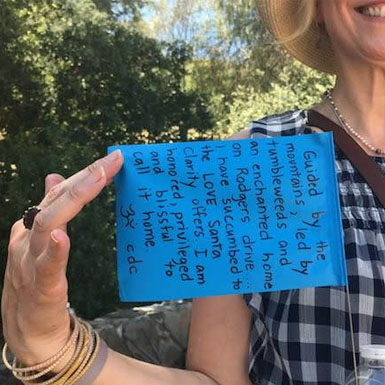 Guided by the
mountains, led by
tumbleweeds and
an enchanted home
on Rodgers drive....
I have succumbed to
the LOVE Santa
Clarity offers. I am
honored, privileged
and blissful to
call it home.
cdc